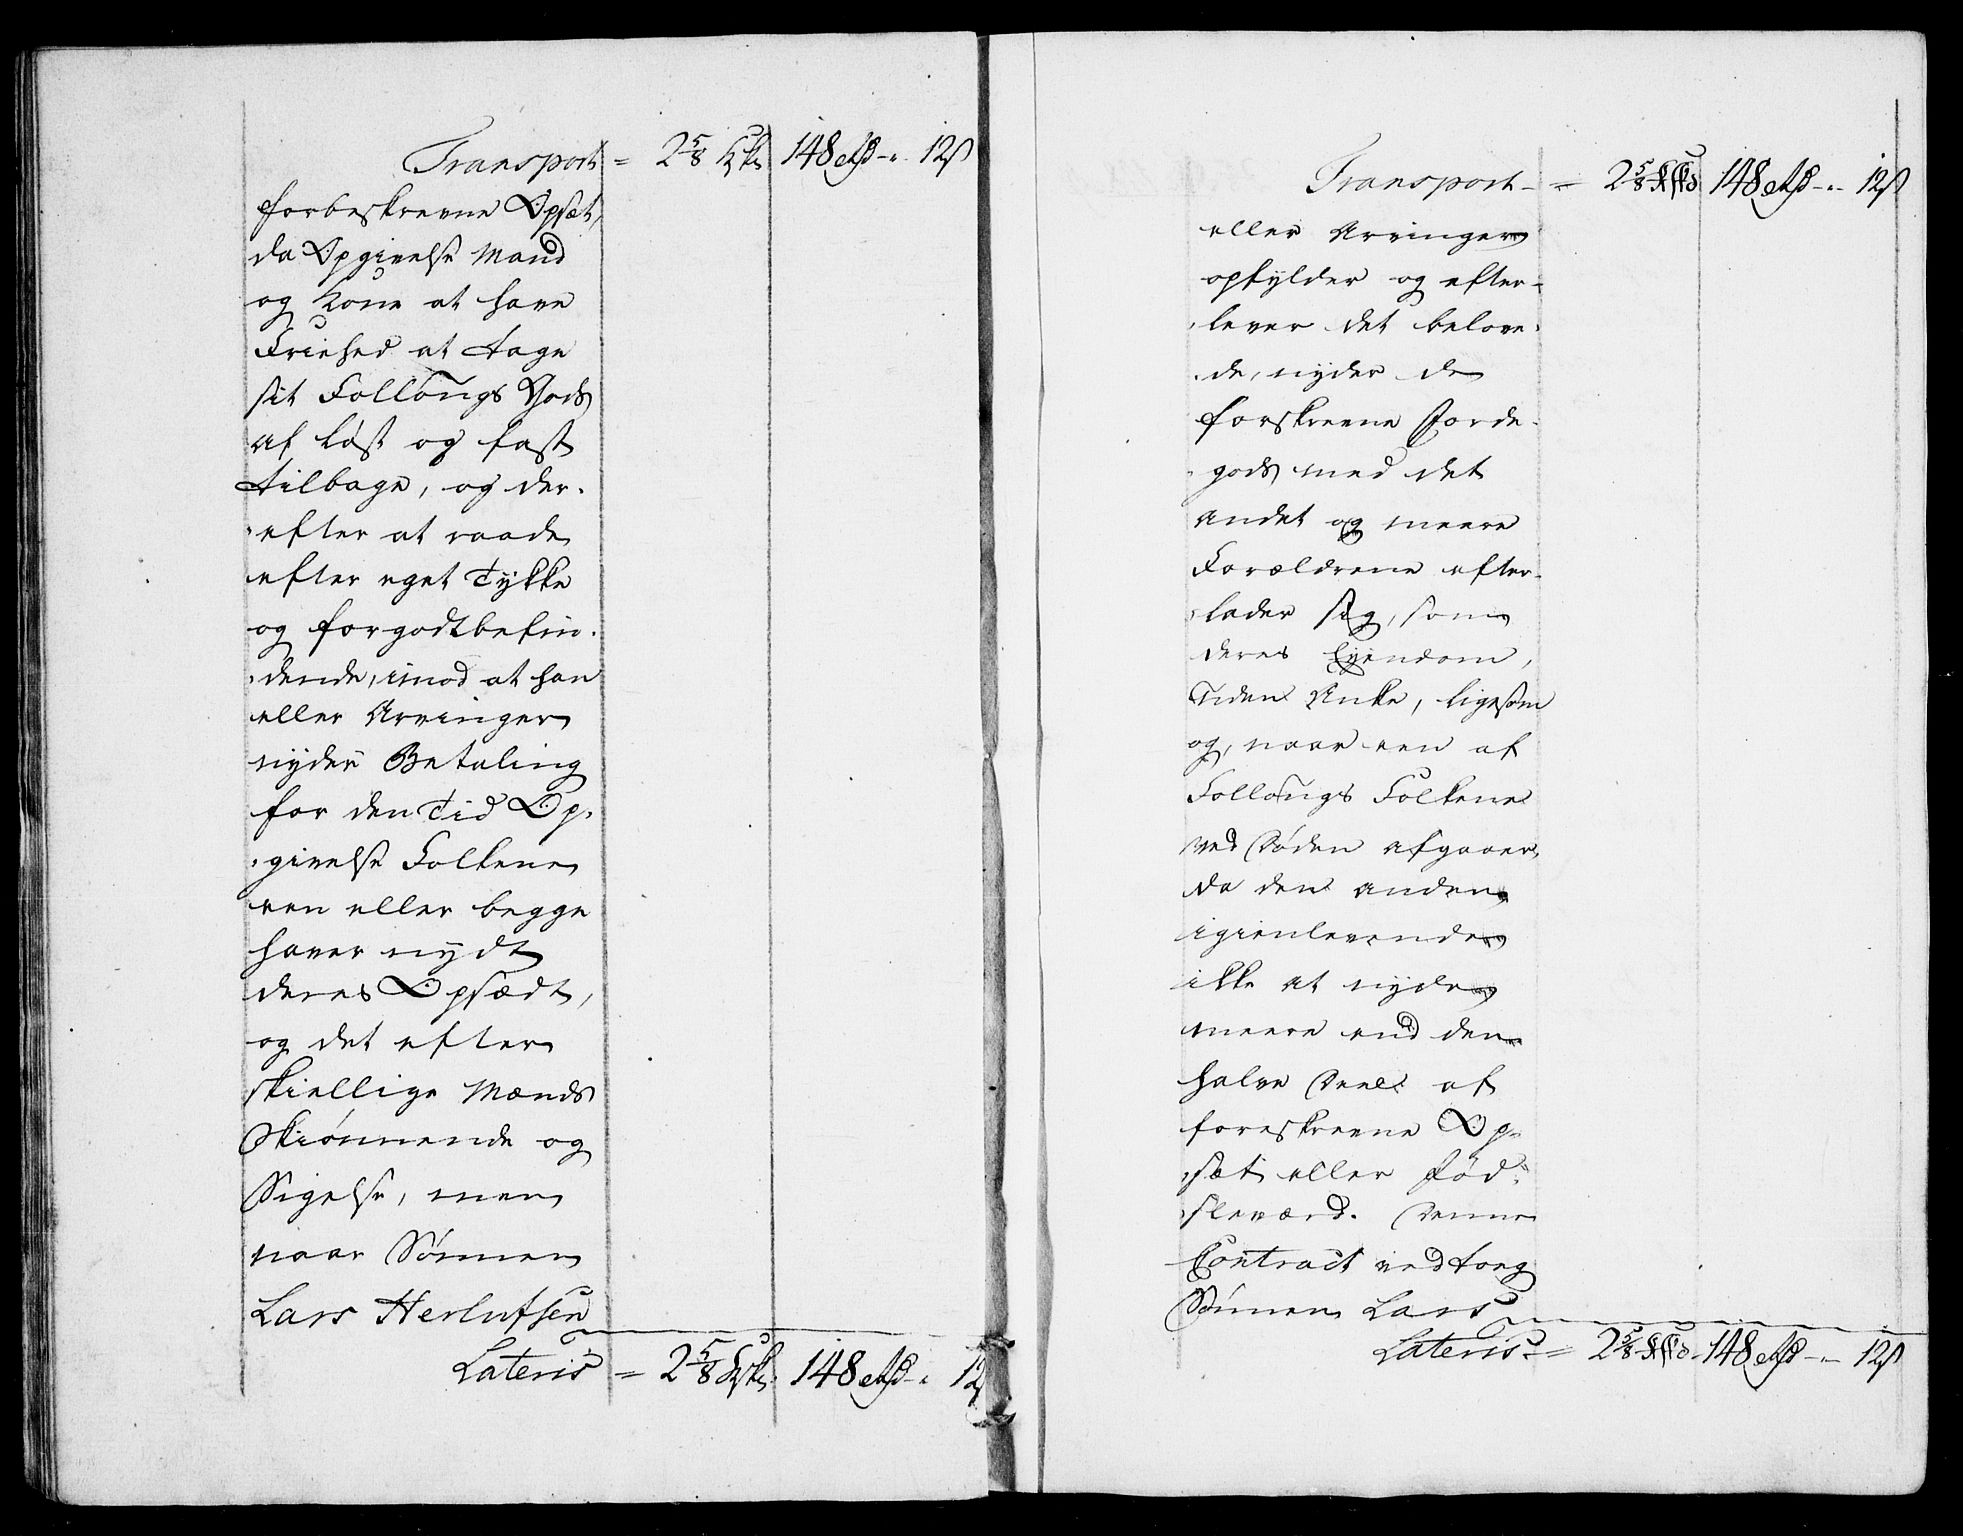 Transport = 2 5/8 148 rd - " - 12ß
forbeskrevne Opsæt,
da Opgivelse Mand
og Kone at have
Friehed at tage
sit Follougs Gods
af løst og fast
tilbage, og der-
efter at raade
efter eget Tykke
og forgodtbefin-
dende, imod at han
eller Arvinger
nyder Betaling
for den Tid Op-
givelse Folkene
een eller begge
haver nydt
deres Opsædt,
og det efter
skiellige Mænds
Skiønnende og
Sigelse, men
naar Sønnen
Lars Herlufsen
Lateris = 2 5/8 148 rd - " 12
Transport - = 2 5/8 148 rd - " - 12ß
eller Arvinger
opfylder og efter-
lever det belove-
de, nyder de
forskrevne Jorde-
gods med det
andet og meere
Forældrene efter-
lader sig, som
deres Eyendom,
uden Anke, ligesom
og, naar een af
Follougs Folkene
ved Døden afgaaer,
da den anden
igienlevende
ikke at nyde
meere end den
halve Deel af
foreskrevne Op-
sæt eller Fød-
sleværd. Denne
Contract vedtoeg
Sønnen Lars
Lateris = 2 5/8 148 rd - " - 12ß